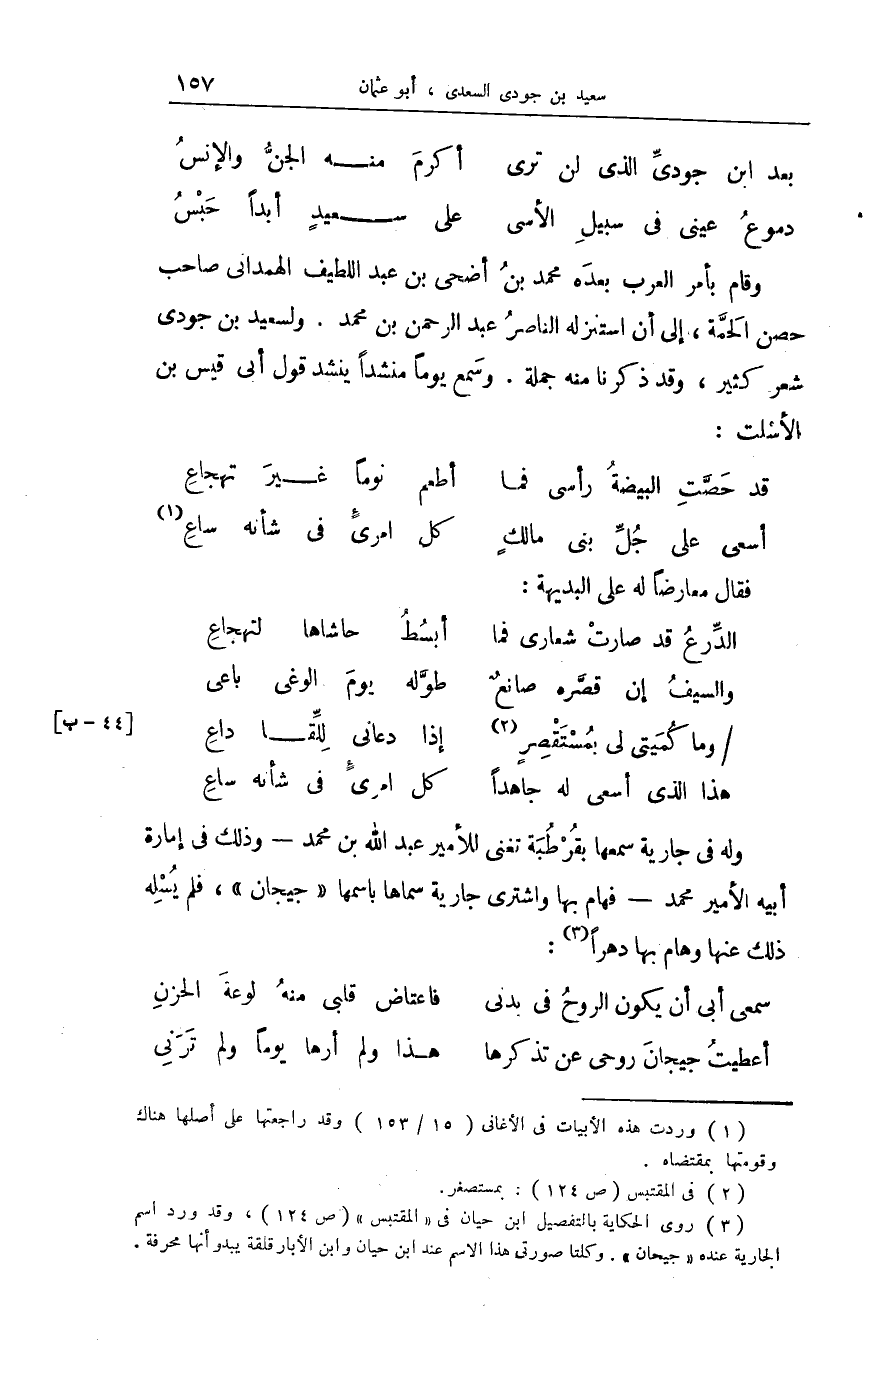 سعيد بن جودى السعدى ، أبو عثمان ١٥٧
بعد ابن جودىِّ الذى لن ترى أكرمَ منـــه الجنُّ والإنسُ
دموعُ عينى فى سبيلِ الأسى على ســـعيدٍ أبداً حَبْسُ
وقام بأمر العرب بعدَه محمد بنُ أضحى بن عبد اللطيف الهمدانى صاحب
حصن الحَمَّة ، إلى أن استنزله الناصرُ عبد الرحمن بن محمد . ولسعيد بن جودى
شعر كثير ، وقد ذكرنا منه جملة . وسَمع يوماً منشداً ينشد قول أبى قيس بن
الأسْلت :
قد حَصَّتِ البيضةُ رأسى فمـا أطعم نوماً غـــيرَ تهجاعِ
أسعى على جُلِّ بنى مالكٍ كل امرئٍ فى شأنه ساعِ (١)
فقال معارضاً له على البديهة :
الدِّرعُ قد صارتْ شعارى فما أبسُطُ حاشاها لتهجاعِ
والسيفُ إن قصَّره صانعٌ طوَّله يومَ الوغى باعى
/ وما كُمَيتى لى بمُسْتَقْصِرٍ (٢) إذا دعانى لِلِّقـــا داعِ [٤٤ - ب]
هذا الذى أسعى له جاهداً كل امرئٍ فى شأنه ساعِ
وله فى جارية سمعها بقُرْطُبَة تغنى للأمير عبد الله بن محمد — وذلك فى إمارة
أبيه الأمير محمد — فهام بها واشترى جارية سماها باسمها « جيجان » ، فلم يُسْلِه
ذلك عنها وهام بها دهراً (٣) :
سمعى أبى أن يكون الروحُ فى بدنى فاعتاض قلبى منهُ لوعةَ الحزنِ
أعطيتُ جيجانَ روحى عن تذكرها هــذا ولم أرها يوماً ولم تَرَنِى
(١) وردت هذه الأبيات فى الأغانى ( ١٥ / ١٥٣ ) وقد راجعتها على أصلها هناك
وقومتها بمقتضاه .
(٢) فى المقتبس ( ص ١٢٤ ) : بمستصغر.
(٣) روى الحكاية بالتفصيل ابن حيان فى « المقتبس » ( ص ١٢٤ ) ، وقد ورد اسم
الجارية عنده « جيحان » . وكلتا صورتى هذا الاسم عند ابن حيان وابن الأبار قلقة يبدو أنها محرفة .